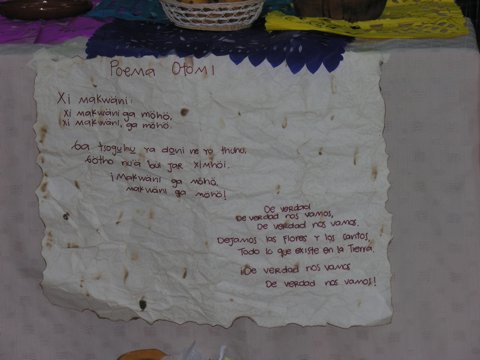 Poema Otomi
Xi makwani:
Xi makwani ga möhö,
Xi makwani, ga möhö.
Ga tsoguhu ya doni ne ya thuhu,
göthö nu'a bui jar ximhöi.
¡Makwani ga möhö,
makwani ga möhö!
De verdad
De verdad nos vamos,
De verdad nos vamos.
Dejamos las flores y los cantos,
Todo lo que existe en la Tierra.
¡De verdad nos vamos
De verdad nos vamos!